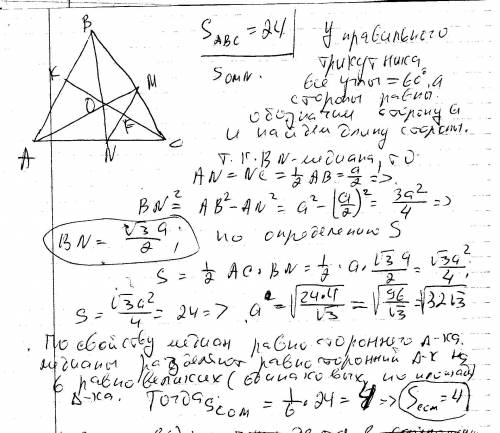 B
K
M
O
F
A
N
C
S_ABC = 24
S_OMN.
У правильного
трикутника
все углы = 60°, а
стороны равны.
обозначим сторону a
и найдём длину стороны.
т.к. BN - медиана, то
AN = NC = 1/2 AB = a/2 =>
BN² = AB² - AN² = a² - (a/2)² = 3a²/4 =>
BN = √3 a/2; по определению S
S = 1/2 AC · BN = 1/2 · a · √3 a/2 = √3a²/4;
S = √3a²/4 = 24 => a² = √(24·4/√3) = √(96/√3) = √(32√3)
По свойству медиан равностороннего Δ-ка.
медианы разделяют равносторонний Δ-к на
6 равновеликих (одинаковых по площади)
Δ-ка. Тогда S_COM = 1/6 · 24 = 4 => S_COM = 4